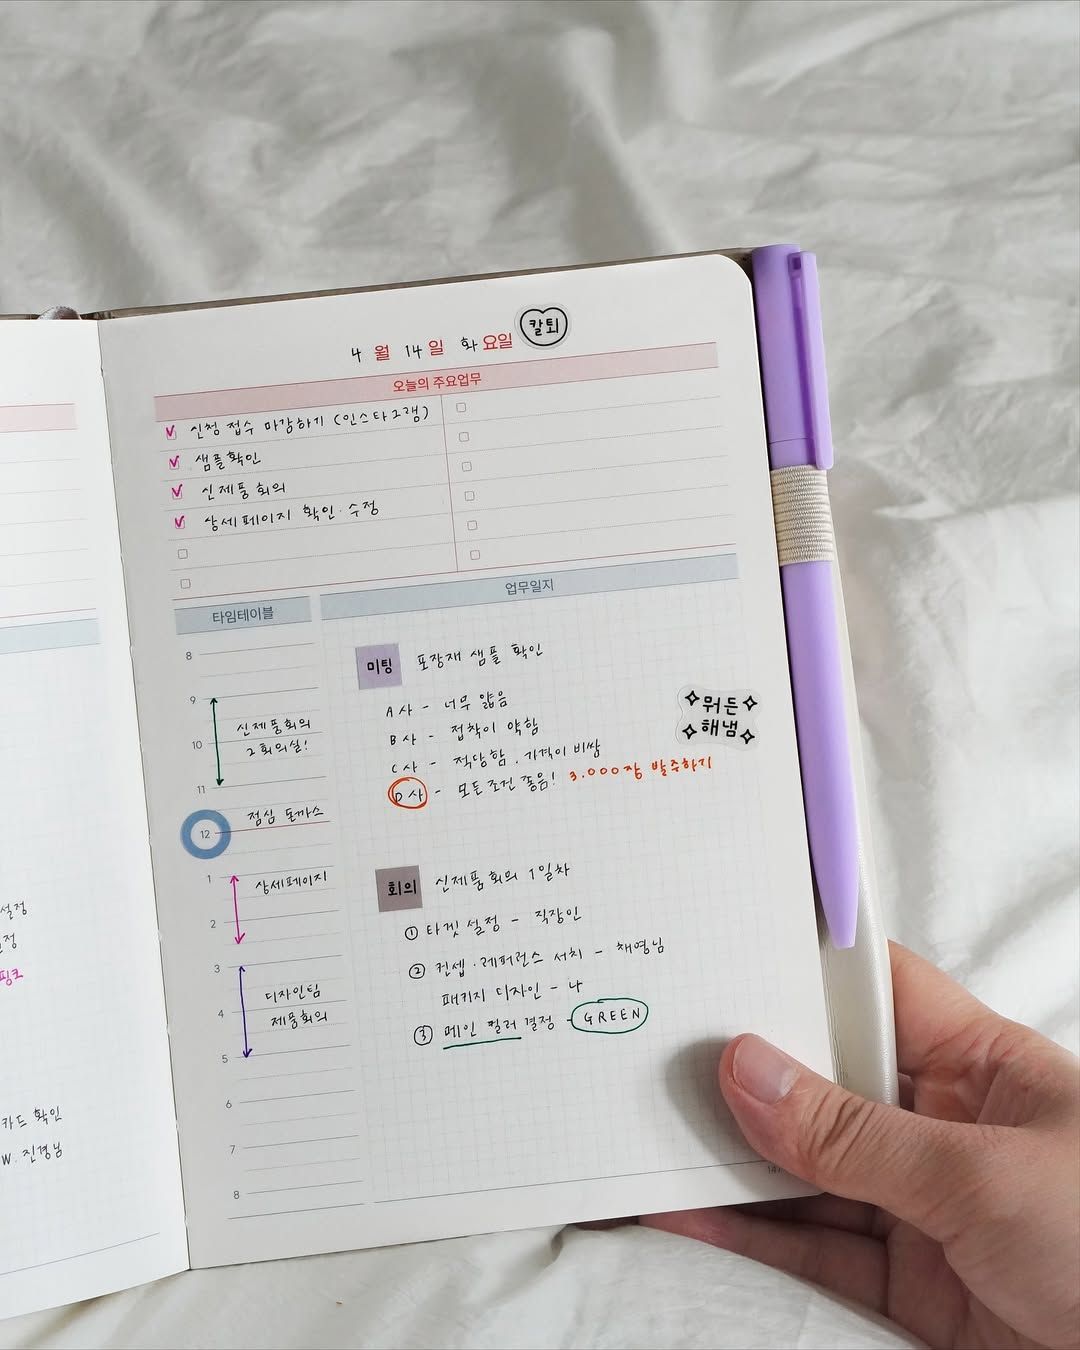 4 월 14 일 화 요일
칼퇴
오늘의 주요업무
신청 접수 마감하기 (인스타그램)
샘플확인
신제품 회의
상세페이지 확인·수정
타임테이블
8
9
신제품회의
10
2회의실!
11
점심 돈까스
12
1
상세페이지
2
3
디자인팀
4
제품회의
5
6
7
8
업무일지
미팅 포장재 샘플 확인
A사 - 너무 얇음
B사 - 접착이 약함
C사 - 적당함. 가격이 비쌈
D사 - 모든 조건 좋음! 3.000장 발주하기
뭐든
해냄
회의 신제품회의 1일차
① 타겟 설정 - 직장인
② 컨셉·레퍼런스 서치 - 채영님
패키지 디자인 - 나
③ 메인 컬러 결정 - GREEN
설정
정
핑크
카드 확인
W. 진경님